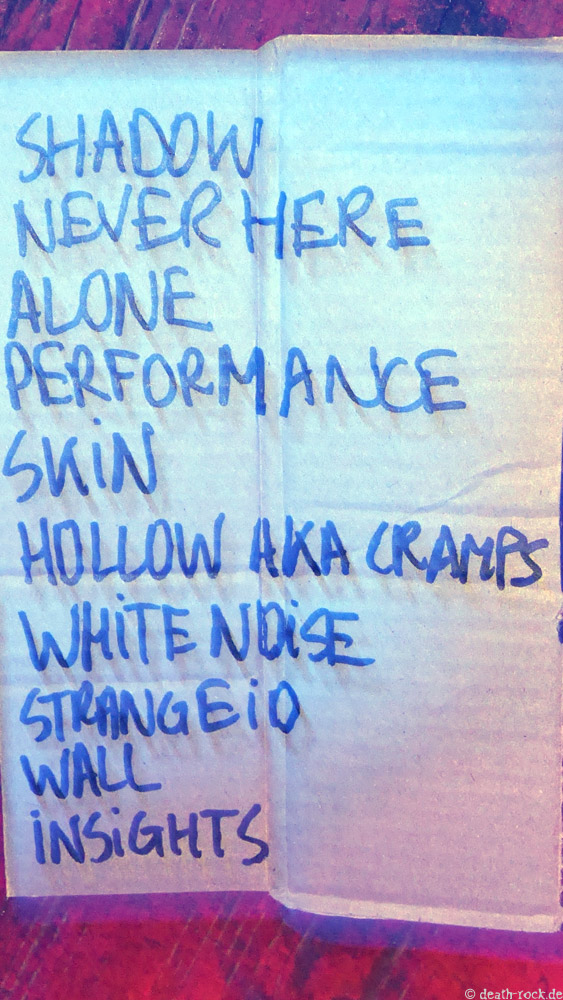 SHADOW
NEVER HERE
ALONE
PERFORMANCE
SKiN
HOLLOW AKA CRAMPS
WHiTE NOiSE
STRANGE iD
WALL
iNSiGHTS
© death-rock.de